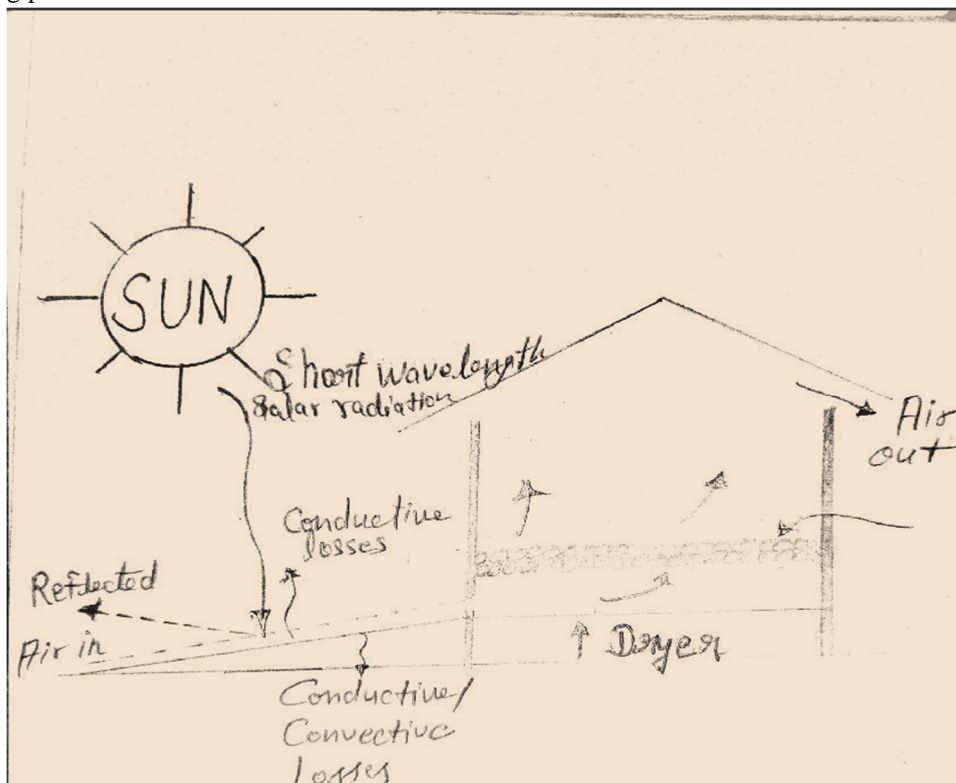 SUN
Short wavelength
Salar radiation
Air
out
Conductive
losses
Reflected
Air in
Dryer
Conductive/
Convective
Losses